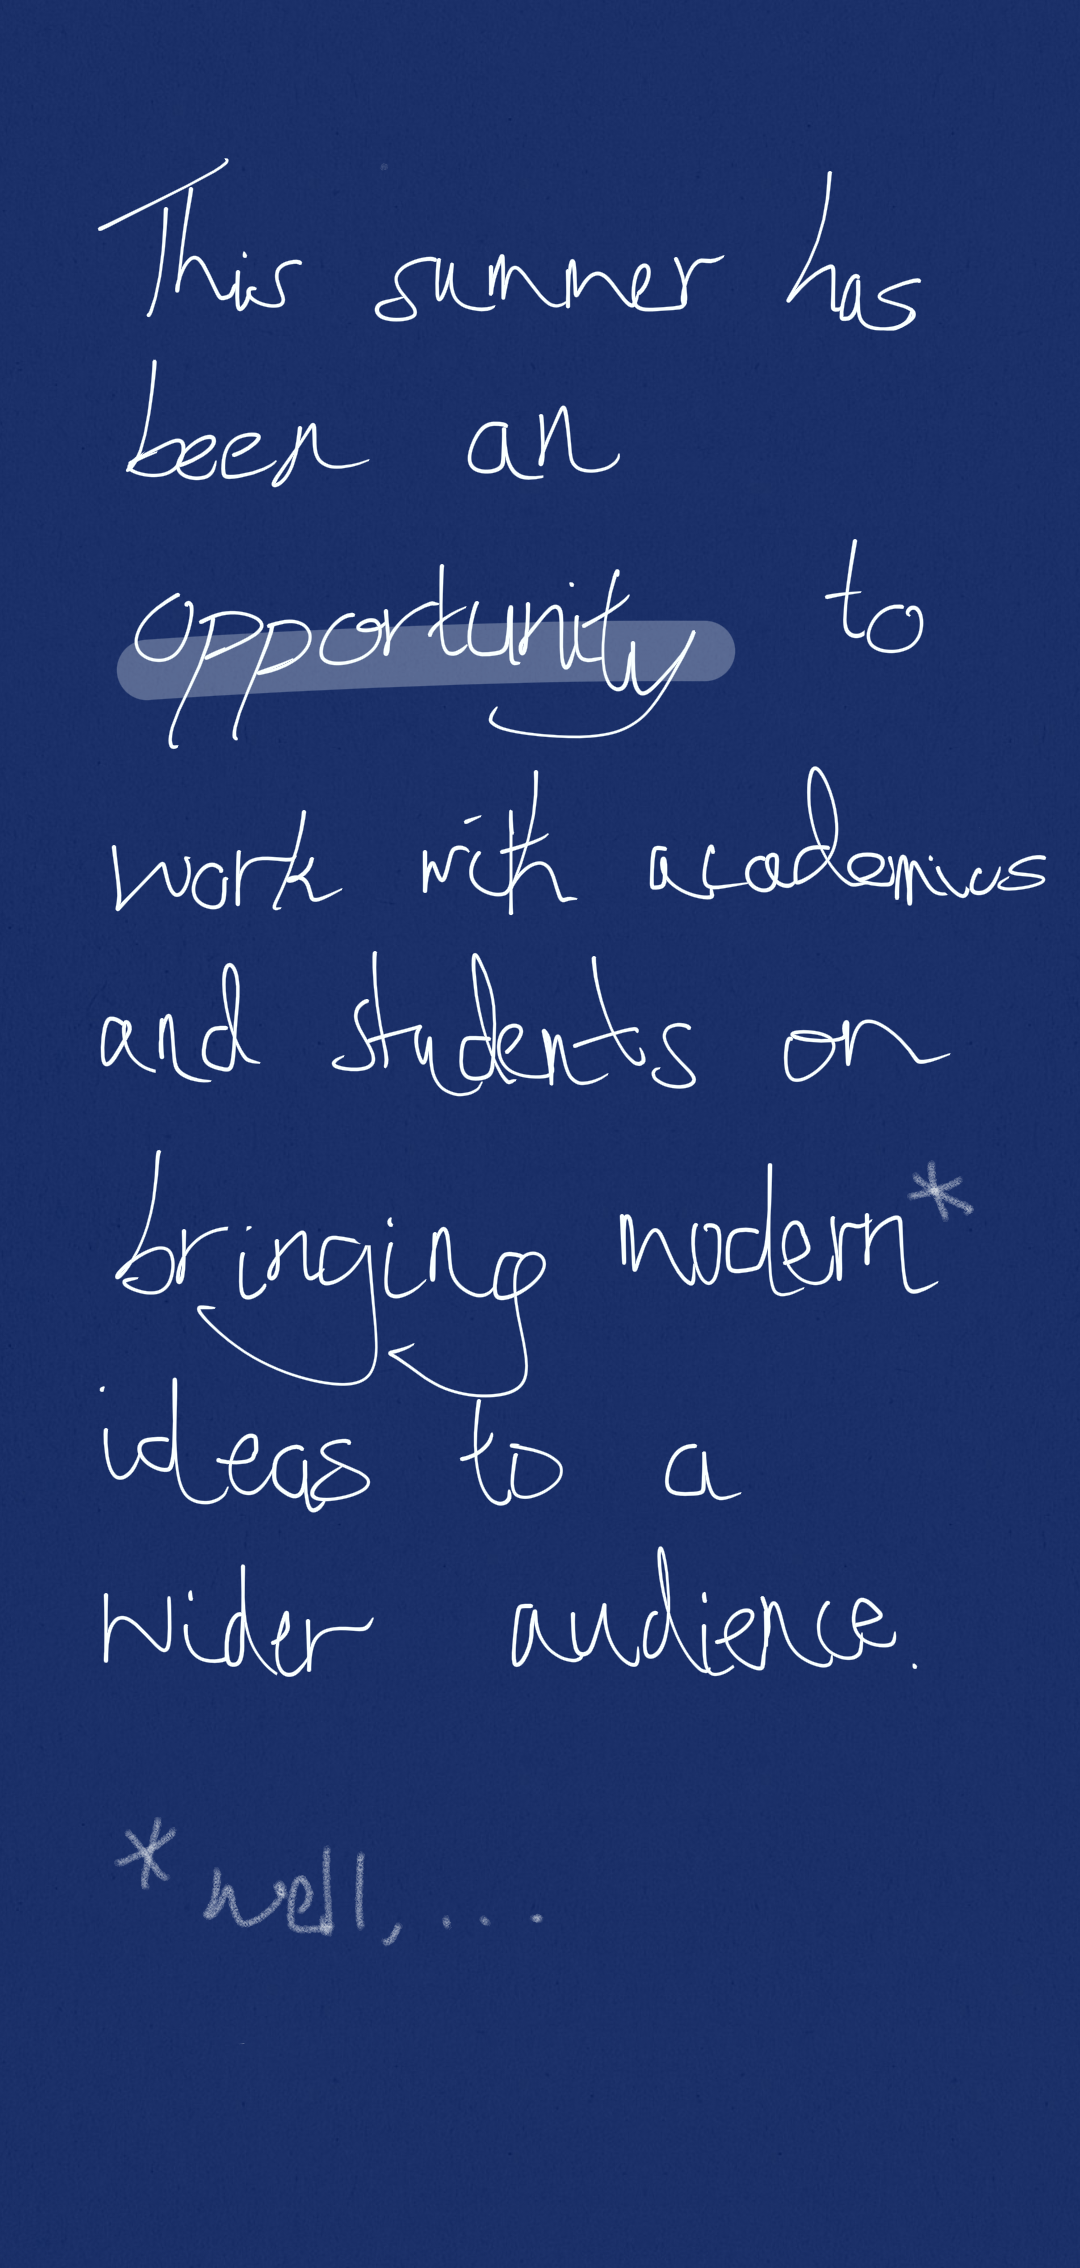 This summer has
been an
opportunity to
work with academics
and students on
bringing modern*
ideas to a
wider audience.
*well, ...